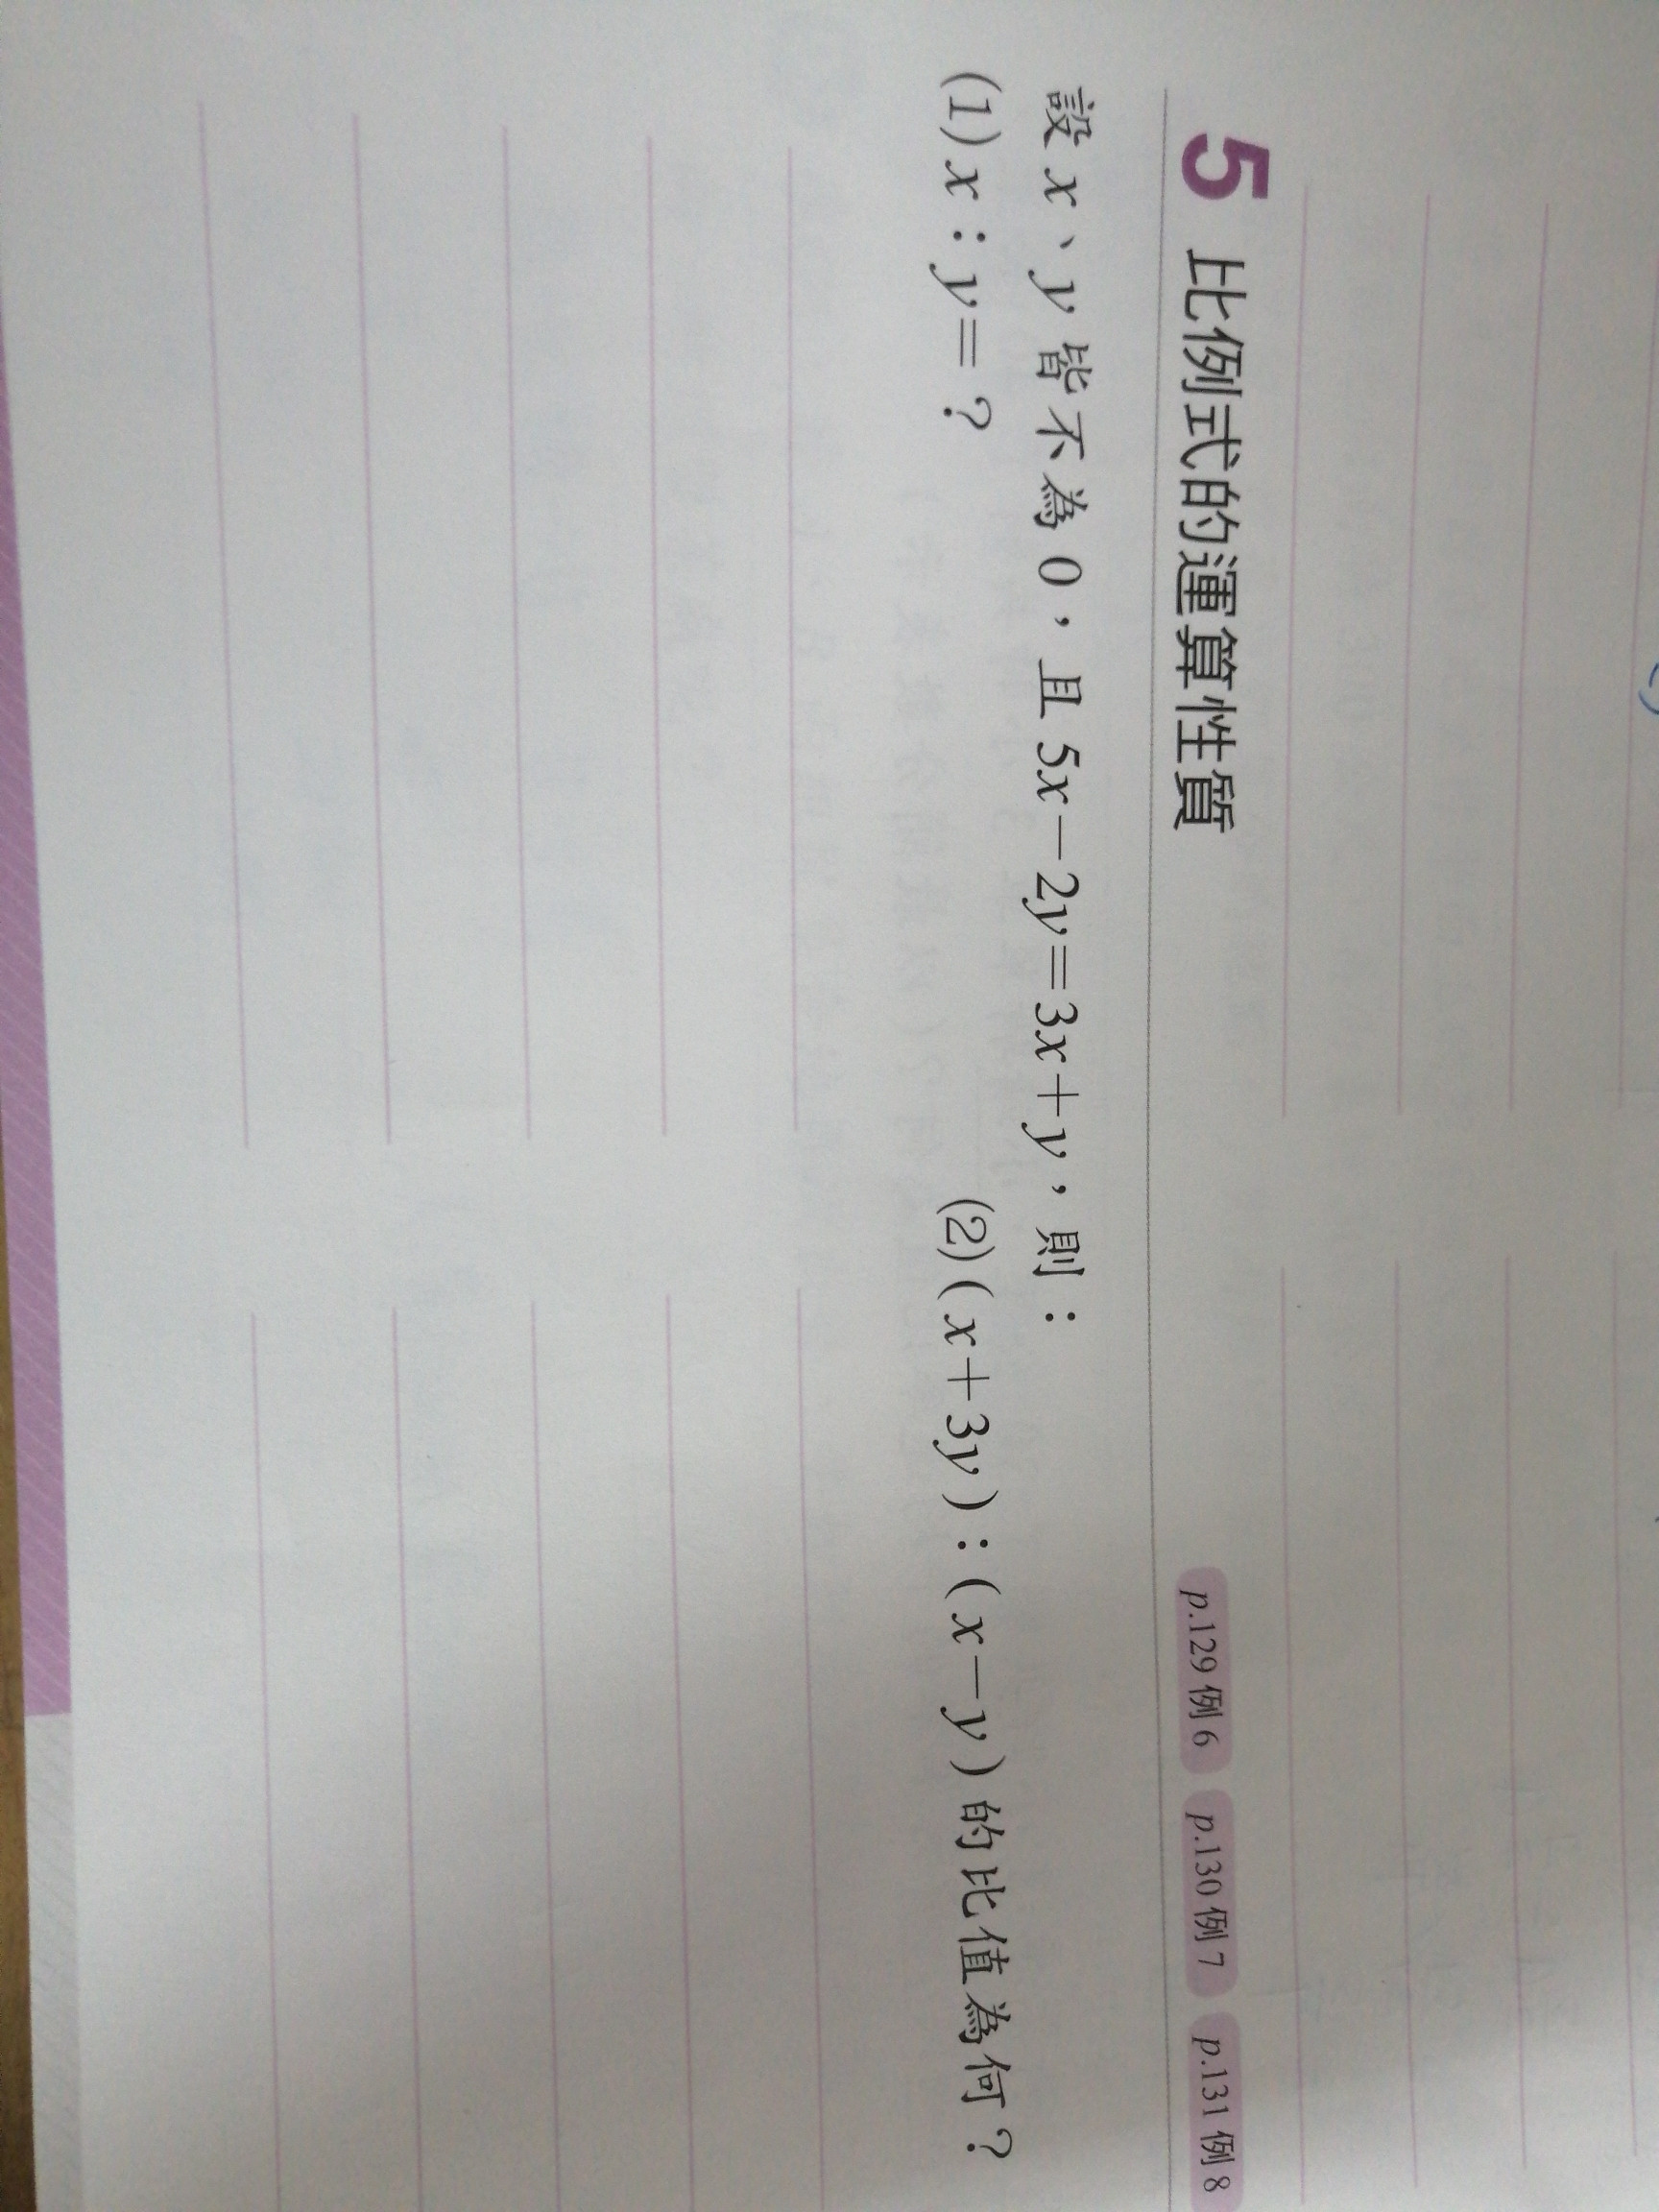 5 比例式的運算性質 p.129 例 6 p.130 例 7 p.131 例 8
設 x、y 皆不為 0，且 5x－2y＝3x＋y，則：
(1) x：y＝？ (2)(x＋3y)：(x－y)的比值為何？